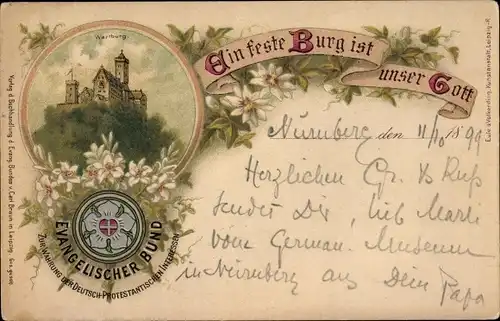 Wartburg.
Ein feste Burg ist
unser Gott
Nürnberg den 11/10 1899
Herzlichen Gr. & Kuß
sendet Dir, lieb Marti
vom German. Museum
in Nürnberg aus Dein Papa
EVANGELISCHER BUND
ZUR WAHRUNG DER DEUTSCH-PROTESTANTISCHEN INTERESSEN
Verlag d. Buchhandlung d. Evang. Bundes v. Carl Braun in Leipzig.
Kunstanstalt, Leipzig-R.